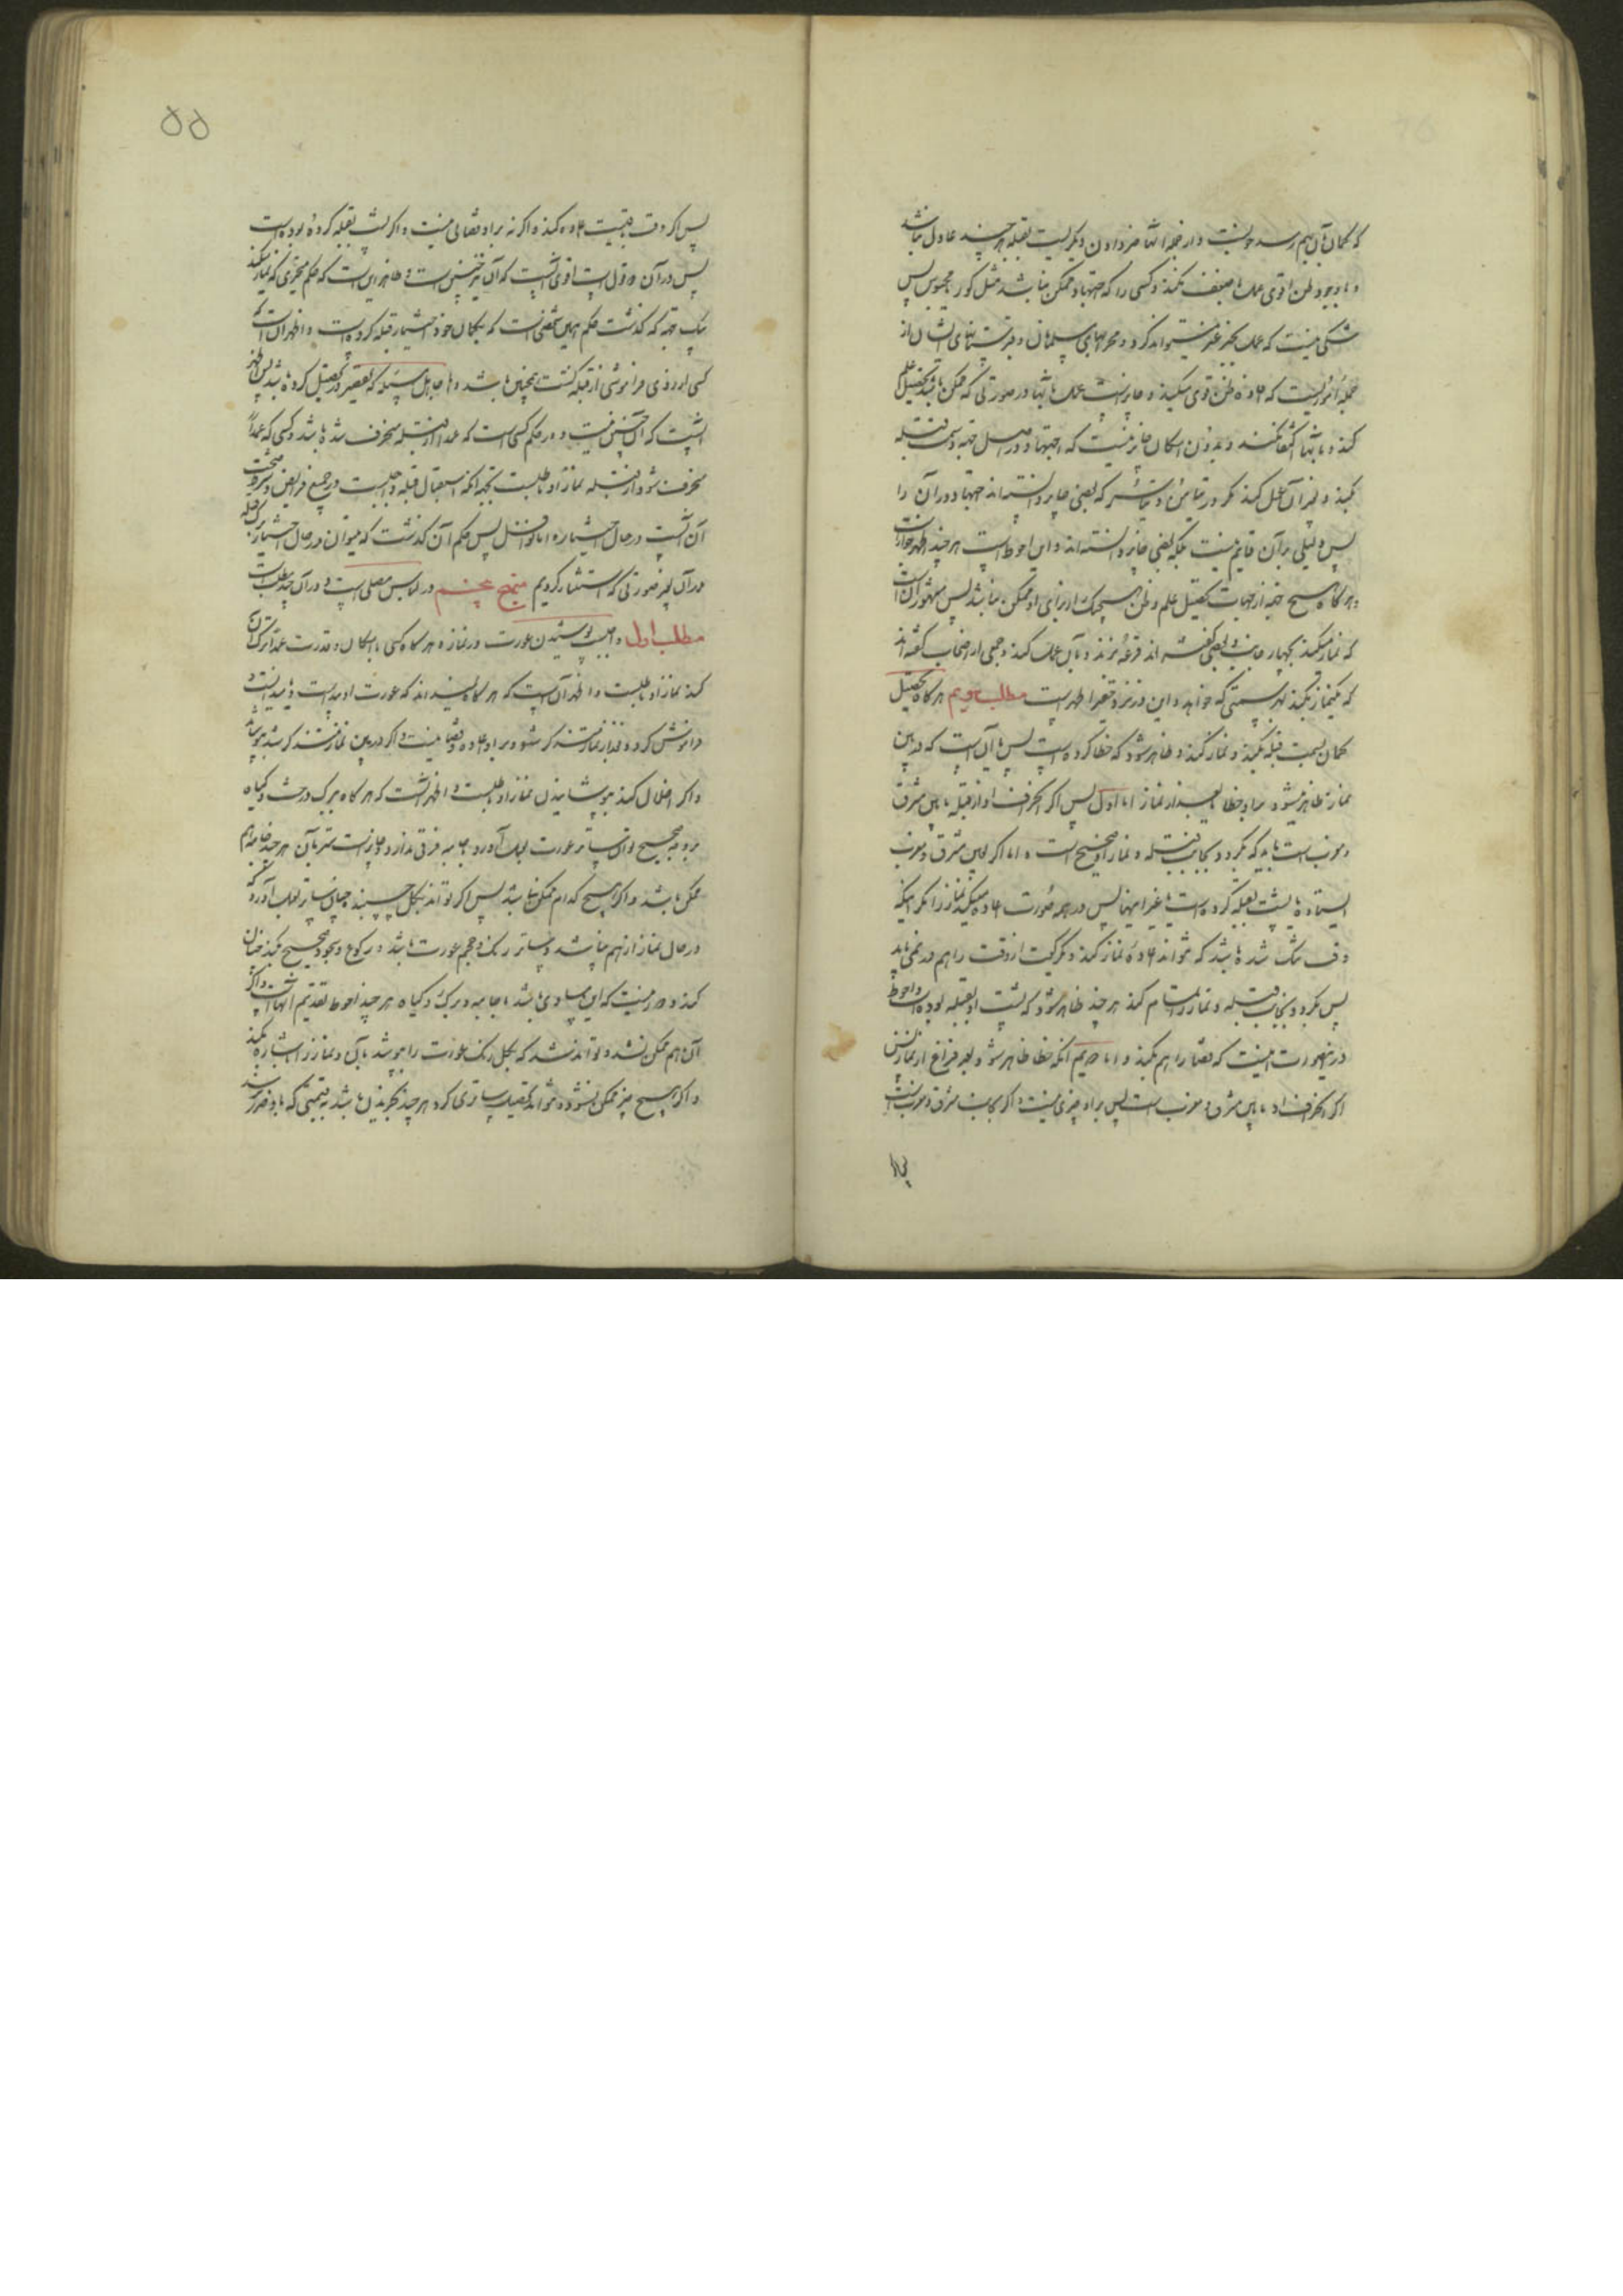 که گمان بآن بهم رسد خوبست و از جمله آنها خبر دادن دیگریست بقبله هر چند عادل نباشد
و با وجود ظن اقوی عمل باضعف نکند و کسی را که اجتهاد ممکن نباشد مثل کور و محبوس پس
شکی نیست که عمل بخبر غیر میتواند کرد و محرابهای مسلمانان و قبرستانهای ایشان از
جمله اموریست که افاده ظن قوی میکند و جایز است عمل بآنها در صورتی که ممکن نباشد تحصیل علم
کند و بآنها اکتفا نکند و بدون امکان جایز نیست که اجتهاد در اصل جهة و سمت قبله
بکند و بغیر آن عمل کند مگر در تیامن و تیاسر که بعضی جایز دانسته‌اند اجتهاد در آن را
پس دلیلی بر آن قایم نیست بلکه بعضی جایز دانسته‌اند و این احوط است هر چند اظهر جواز است
و هر گاه هیچ جهة از جهات تحصیل علم و ظن هیچیک از برای او ممکن نباشد پس مشهور آن است
که نماز میکند بچهار جانب و بعضی گفته‌اند قرعه بزند و بآن عمل کند و جمعی از اصحاب گفته‌اند
که یکنماز بکند بهر سمتی که خواهد و این در نزد حقیر اظهر است مطلب دویم هر گاه تحصیل
گمان بسمت قبله بکند و نماز کند و ظاهر شود که خطا کرده است پس یا آن است که در بین
نماز ظاهر میشود بر او خطا یا بعد از نماز اما اول پس اگر انحراف او از قبله ما بین مشرق
و مغرب است باید که بگردد بجانب قبله و نماز او صحیح است و اما اگر بعین مشرق و مغرب
ایستاده یا پشت بقبله کرده است یا غیر اینها پس در همه صورت اعاده میکند نماز را مگر اینکه
وقت تنگ شده باشد که نتواند اعاده نماز کند و یکرکعت از وقت را هم در نمی‌یابد
پس بگردد بجانب قبله و نماز را تمام کند هر چند ظاهر شود که پشت او بقبله بوده است و احوط
در اینصورت اینست که قضا را هم بکند و اما دویم آنکه خطا ظاهر شود بعد فراغ از نماز پس
اگر انحراف او ما بین مشرق و مغرب است پس بر او چیزی نیست و اگر بجانب مشرق و مغرب است
پس اگر
۵۵
پس اگر وقت باقیست اعاده کند و اگر نه بر او قضائی نیست و اگر پشت بقبله کرده بوده است
پس در آن دو قول است اقوی آنست که آن نیز چنین است و ظاهر این است که حکم متحیری که نماز بکند
بیک جهة که گذشت حکم همین شخص است که بگمان خود اختیار قبله کرده است و اظهر آن است که
کسی از روی فراموشی از قبله گشت همچنین باشد و اما جاهل مسئله که تقصیر در تحصیل کرده باشد پس اظهر
آنست که آن چنین نیست و در حکم کسی است که عمدا از قبله منحرف شده باشد و کسی که عمداً
منحرف شود از قبله نماز او باطلست بجهة آنکه استقبال قبله واجبست در جمیع فرایض و شرط صحت
آن است در حال اختیار و اما نوافل پس حکم آن گذشت که میتوان در حال اختیار ترک قبله
در آن بغیر صورتی که استثنا کردیم منهج پنجم در لباس مصلی است و در آن چند مطلب است
مطلب اول واجبست پوشیدن عورت در نماز و هر گاه کسی با امکان و قدرت عمدا ترک آن
کند نماز او باطلست و اظهر آن است که هر گاه نمیداند که عورت او پیداست یا میدانست و
فراموش کرده و بعد از نماز متذکر شود بر او اعاده و قضا نیست و اگر در بین نماز متذکر شد بپوشاند
و اگر اخلال کند بپوشانیدن نماز او باطلست و اظهر آنست که هر گاه ببرک درخت و گیاه
بر وجه صحیح تواند ساتر عورت بعمل آورد با جامه فرقی ندارد و جایز است ستر بآن هر چند جامه هم
ممکن باشد و اگر هیچ کدام ممکن نباشد پس اگر تواند بگل چسبنده چنان ساتر بعمل آورد که
در حال نماز از هم نپاشد و ساتر رنگ و حجم عورت باشد و رکوع و سجود صحیح بکند چنان
کند و دور نیست که این مساوی باشد با جامه و برک و گیاه هر چند احوط تقدیم آنهاست و اگر
آن هم ممکن نشد و تواند شد که بگل رنگ عورت را بپوشد بآن و نماز را باشاره بکند
و اگر هیچ چیز ممکن نشود و نتواند تحصیل ساتری کرد هر چند بخریدن باشد بقیمتی که باو ضرر نرسد